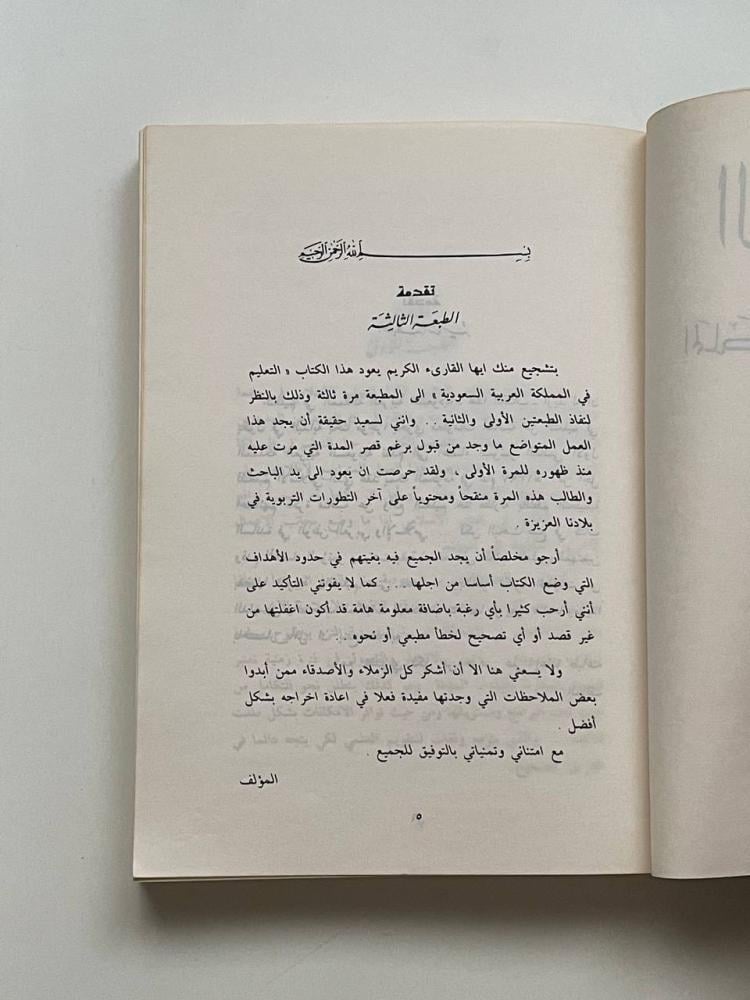 بسم الله الرحمن الرحيم
تقدمة
الطبعة الثالثة
بتشجيع منك ايها القارىء الكريم يعود هذا الكتاب « التعليم
في المملكة العربية السعودية » الى المطبعة مرة ثالثة وذلك بالنظر
لنفاذ الطبعتين الأولى والثانية . . وانني لسعيد حقيقة أن يجد هذا
العمل المتواضع ما وجد من قبول برغم قصر المدة التي مرت عليه
منذ ظهوره للمرة الأولى ، ولقد حرصت ان يعود الى يد الباحث
والطالب هذه المرة منقحاً ومحتوياً على آخر التطورات التربوية في
بلادنا العزيزة .
أرجو مخلصاً أن يجد الجميع فيه بغيتهم في حدود الأهداف
التي وضع الكتاب أساسا من اجلها . . . كما لا يفوتني التأكيد على
أنني أرحب كثيرا بأي رغبة باضافة معلومة هامة قد أكون اغفلتها من
غير قصد أو أي تصحيح لخطأ مطبعي أو نحوه . .
ولا يسعني هنا الا أن أشكر كل الزملاء والأصدقاء ممن أبدوا
بعض الملاحظات التي وجدتها مفيدة فعلا في اعادة اخراجه بشكل
أفضل .
مع امتناني وتمنياتي بالتوفيق للجميع .
المؤلف
٥